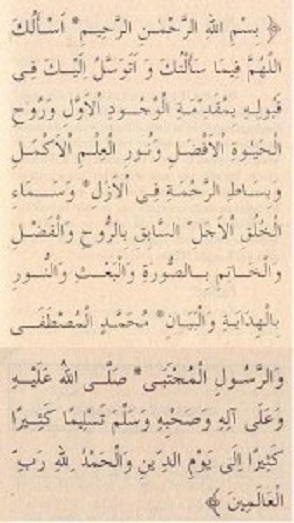 ﴿ بِسْمِ اللهِ الرَّحْمٰنِ الرَّحِيمِ * اَسْأَلُكَ
اللّٰهُمَّ فِيمَا سَأَلْتُكَ وَ اَتَوَسَّلُ اِلَيْكَ فِى
قَبُولِهِ بِمُقَدِّمَةِ الْوُجُودِ اْلاَوَّلِ وَرُوحِ
الْحَيٰوةِ اْلاَفْضَلِ وَنُورِ الْعِلْمِ اْلاَكْمَلِ
وَبِسَاطِ الرَّحْمَةِ فِى اْلاَزَلِ * وَسَمَاءِ
الْخُلُقِ اْلاَجَلِّ السَّابِقِ بِالرُّوحِ وَالْفَضْلِ
وَالْخَاتِمِ بِالصُّورَةِ وَالْبَعْثِ وَالنُّورِ
بِالْهِدَايَةِ وَالْبَيَانِ * مُحَمَّدٍ الْمُصْطَفَى
وَالرَّسُولِ الْمُجْتَبَى * صَلَّى اللهُ عَلَيْهِ
وَعَلَى آلِهِ وَصَحْبِهِ وَسَلَّمَ تَسْلِيمًا كَثِيرًا
كَثِيرًا اِلَى يَوْمِ الدِّينِ وَالْحَمْدُ لِلهِ رَبِّ
الْعَالَمِينَ ﴾